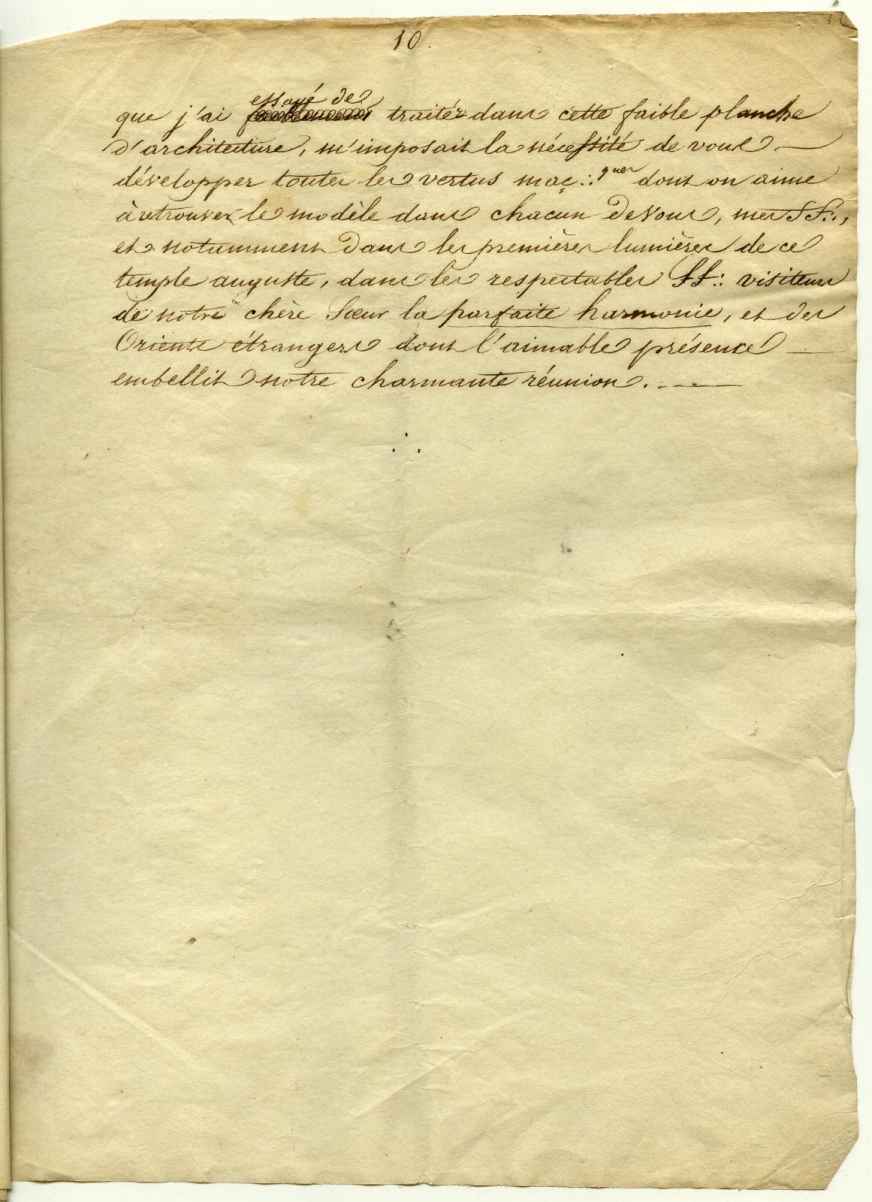 10.
essayé de
que j'ai faiblement traiter dans cette faible planche
d'architecture, m'imposait la nécessité de vous —
développer toutes les vertus maç∴ques dont on aime
à retrouver le modèle dans chacun de vous, mes FF∴,
et notamment dans les premières lumières de ce
temple auguste, dans les respectables ff∴ visiteurs
de notre chère Sœur la parfaite harmonie, et des
Orients étrangers dont l'aimable présence —
embellit notre charmante réunion. - - —
∴